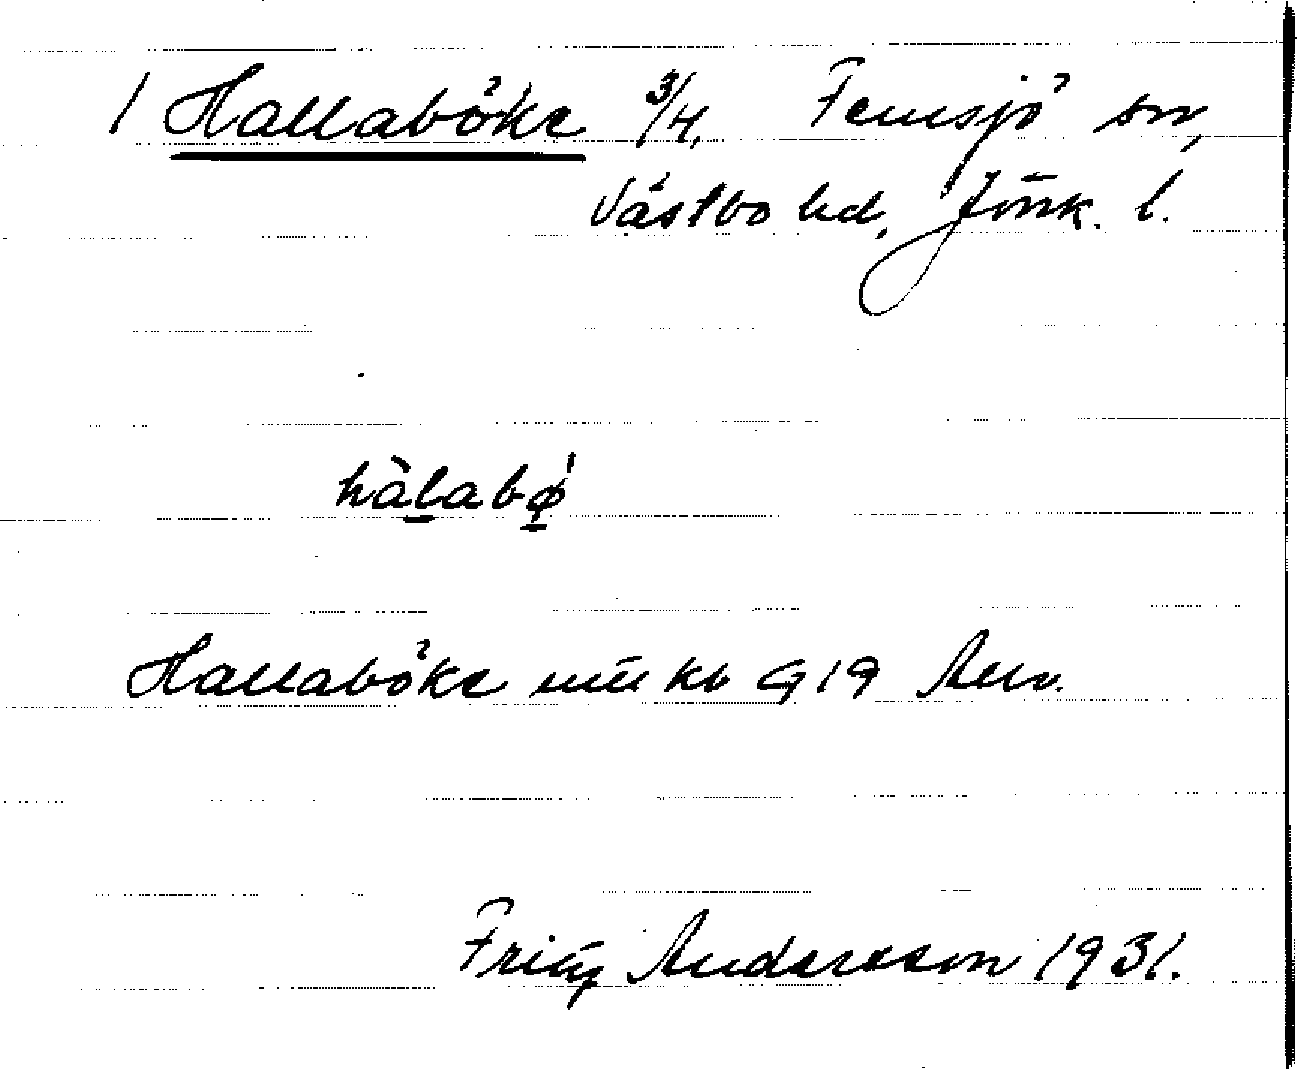 1 Hallaböke 3/4, Femsjö sn,
Västbo hd, Jönk. l.
hàlabø̀
Hallaböke
Fritz Andersson 1931.